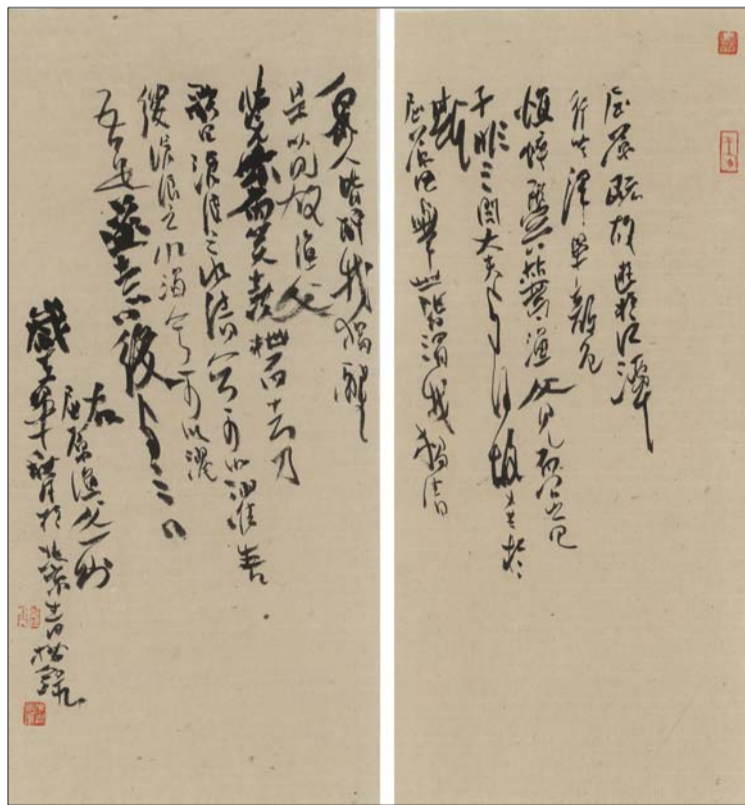 屈原既放遊於江潭
行吟澤畔顏色
憔悴形容枯槁漁父見而問之曰
子非三閭大夫與何故至於
斯
屈原曰舉世皆濁我獨清
眾人皆醉我獨醒
是以見放漁父
莞爾而笑鼓枻而去乃
歌曰滄浪之水清兮可以濯吾
纓滄浪之水濁兮可以濯
吾足遂去不復與言
右屈原漁父
歲於北京青松